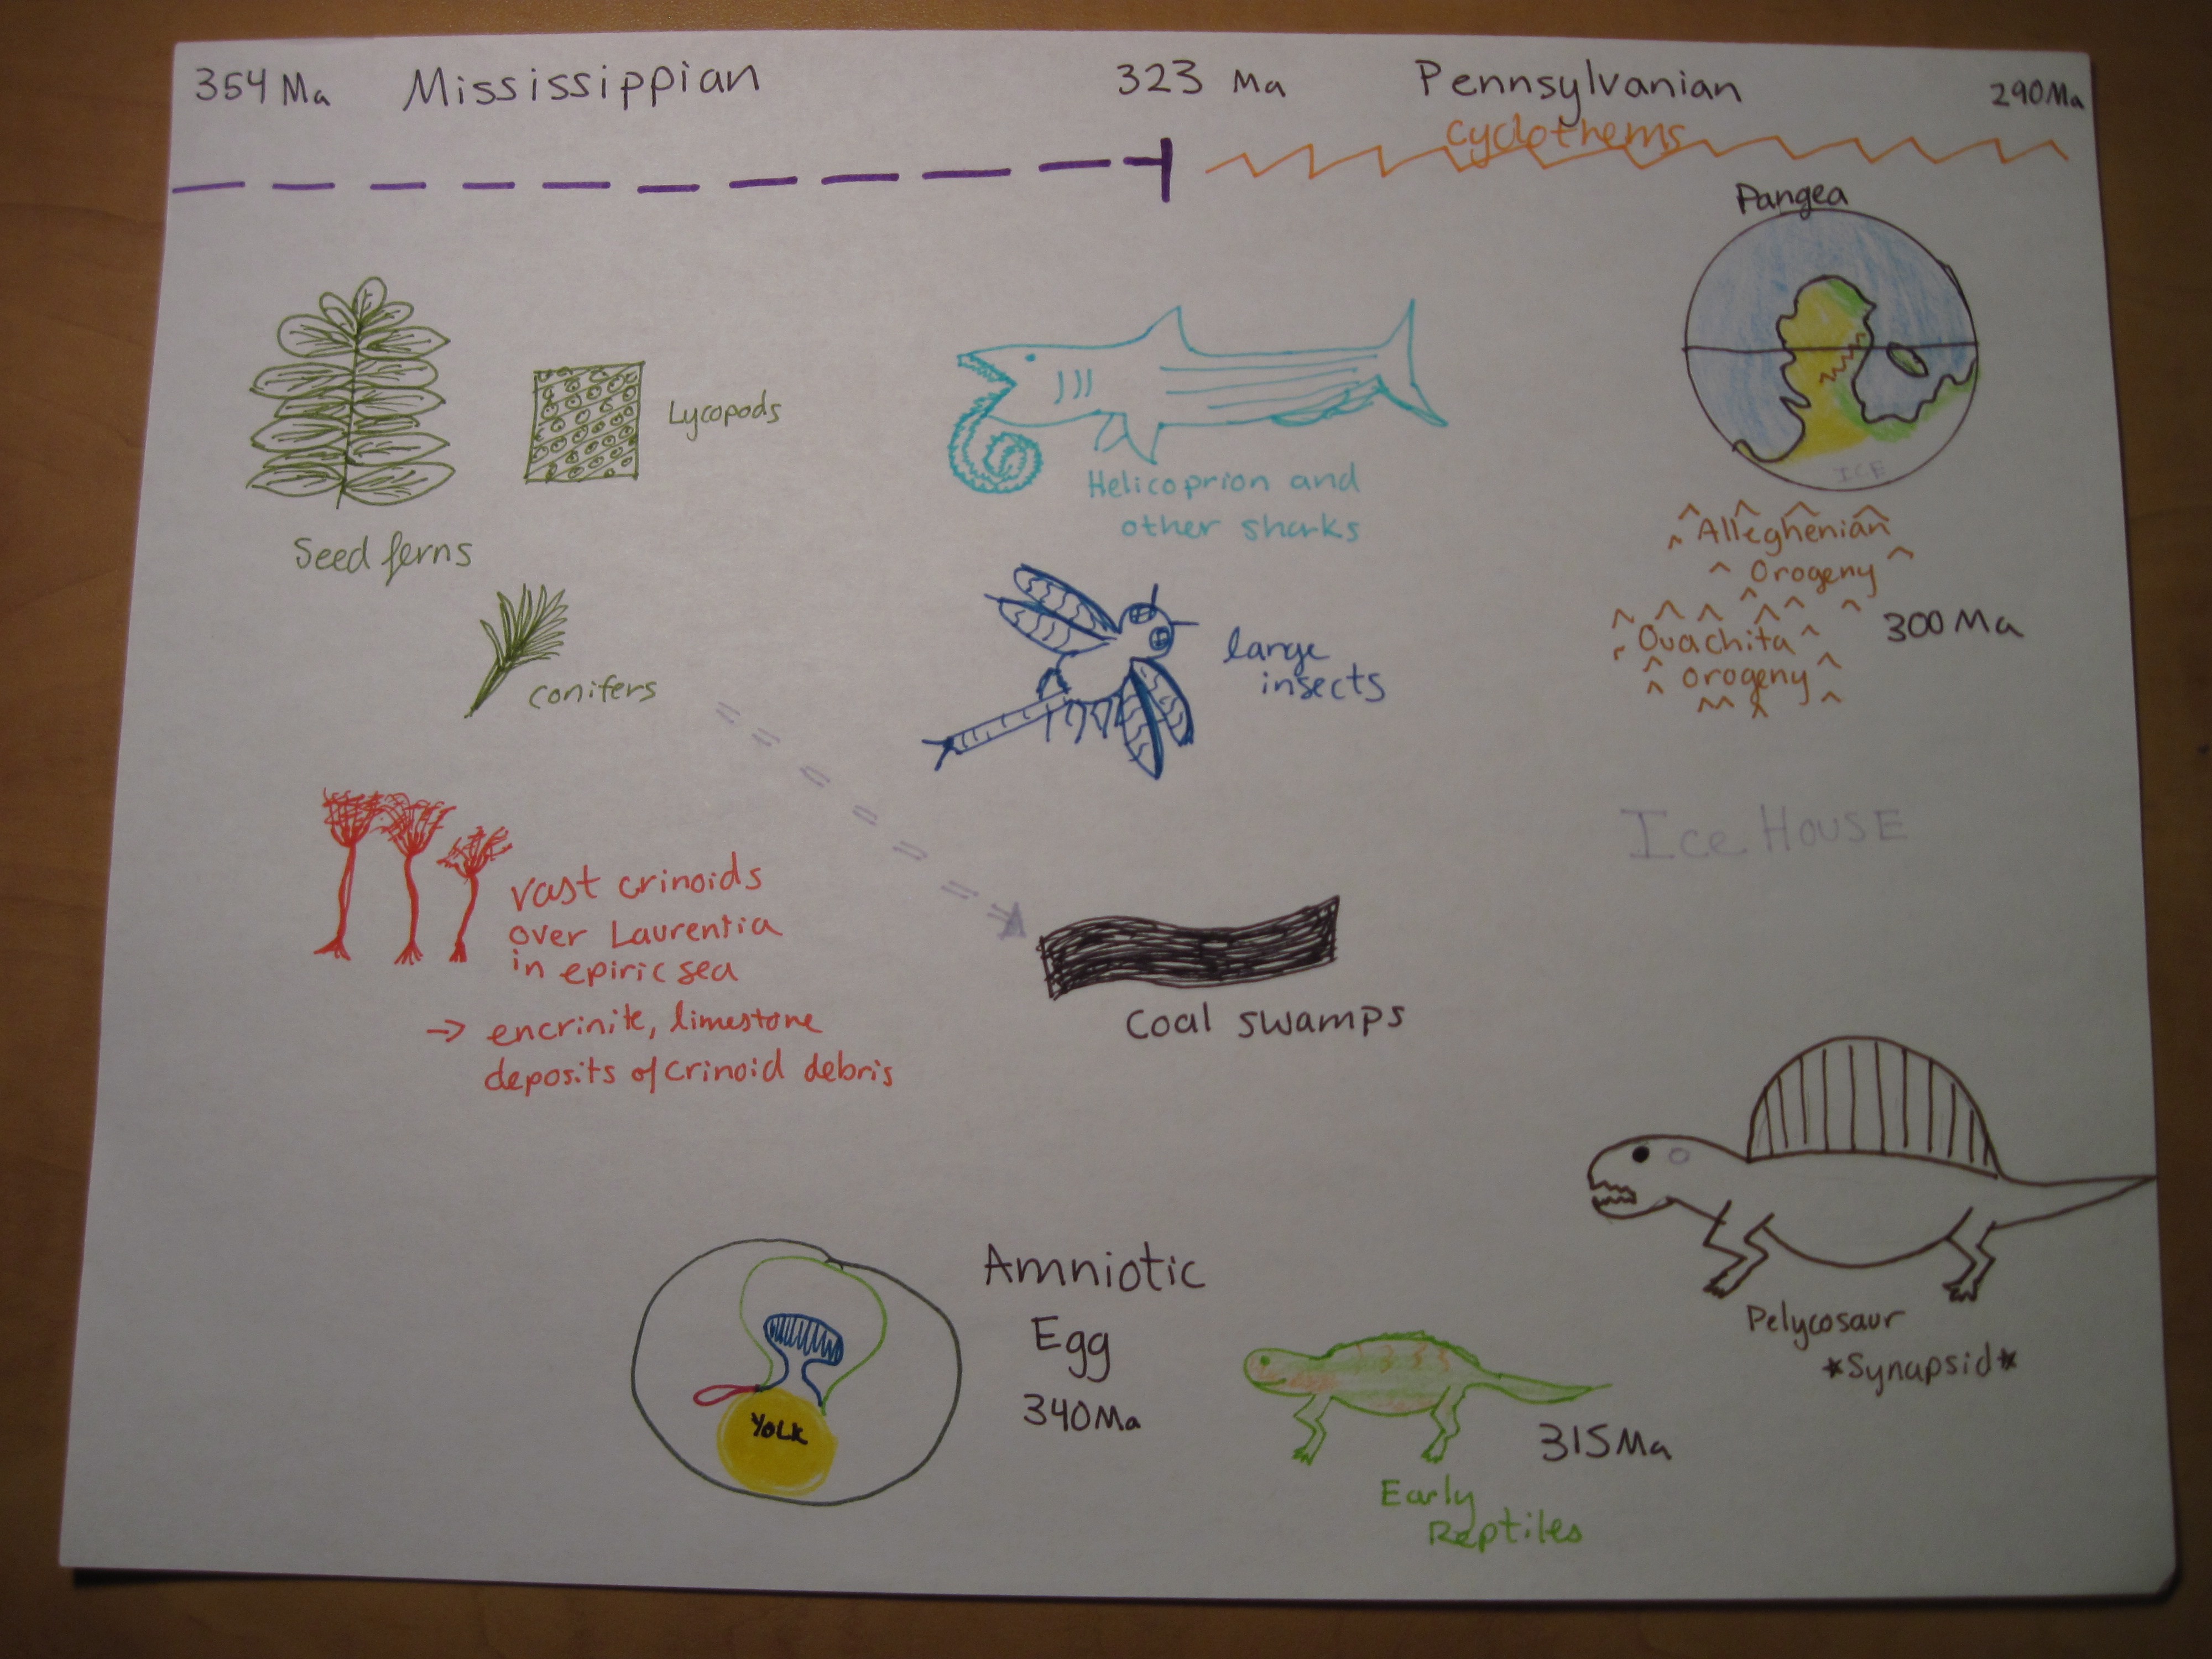 354 Ma Mississippian 323 Ma Pennsylvanian 290 Ma
cyclothems
Pangea
ICE
Lycopods
Seed ferns
conifers
Helicoprion and
other sharks
large
insects
Alleghenian
Orogeny
Ouachita
orogeny
300 Ma
Ice HOUSE
vast crinoids
over Laurentia
in epiric sea
→ encrinite, limestone
deposits of crinoid debris
Coal swamps
Amniotic
Egg
340 Ma
YOLK
315 Ma
Early
Reptiles
Pelycosaur
*Synapsid*